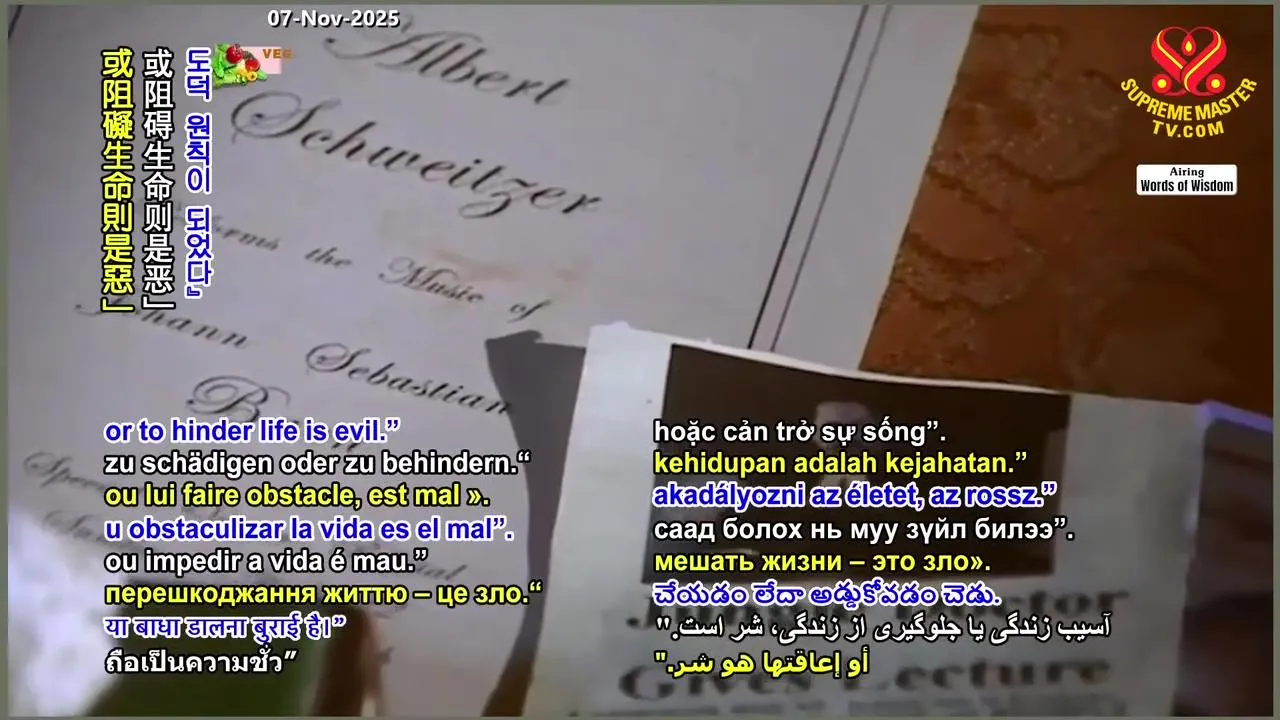 07-Nov-2025
VEG
SUPREME MASTER
TV.COM
Airing
Words of Wisdom
도덕 원칙이 되었다』
或阻碍生命则是恶」
或阻礙生命則是惡」
Albert
Schweitzer
the Music of
Johann Sebastian
or to hinder life is evil.”
zu schädigen oder zu behindern.“
ou lui faire obstacle, est mal ».
u obstaculizar la vida es el mal”.
ou impedir a vida é mau.”
перешкоджання життю – це зло.“
या बाधा डालना बुराई है।”
ถือเป็นความชั่ว”
hoặc cản trở sự sống”.
kehidupan adalah kejahatan.”
akadályozni az életet, az rossz.”
саад болох нь муу зүйл билээ”.
мешать жизни – это зло».
చేయడం లేదా అడ్డుకోవడం చెడు.
آسیب زندگی یا جلوگیری از زندگی، شر است."
أو إعاقتها هو شر."
Gives Lecture